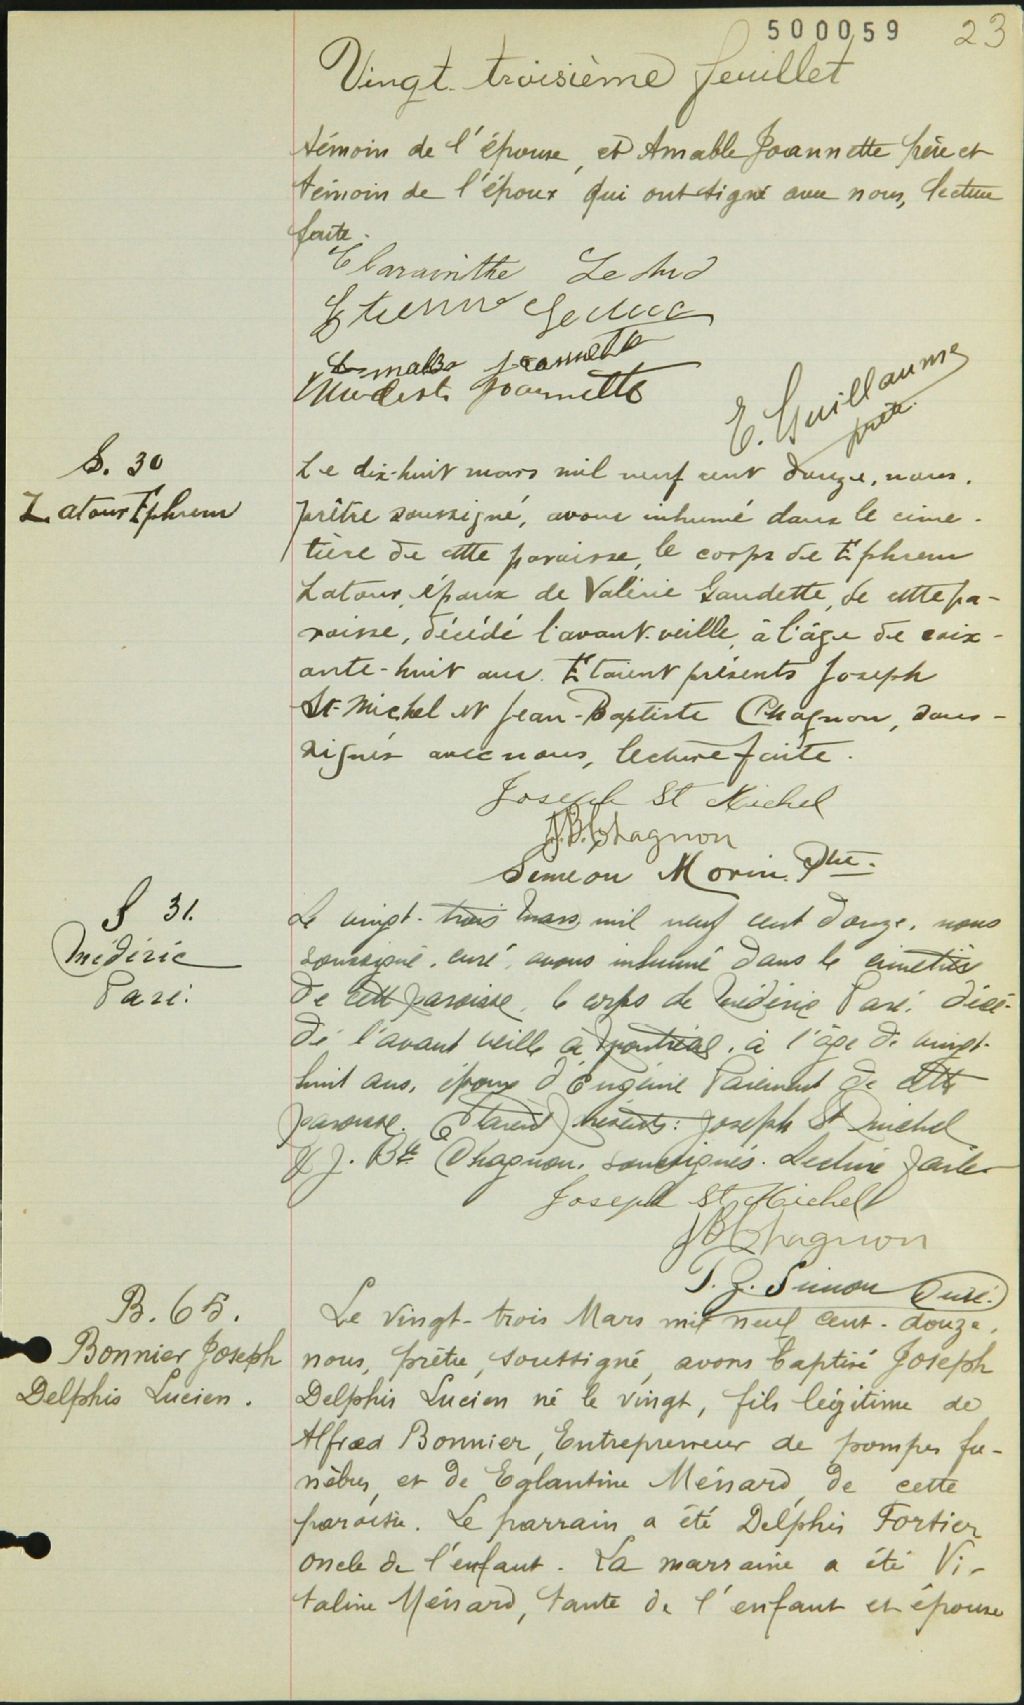 500059 23
Vingt-troisième feuillet
témoin de l'épouse, et Amable Joannette père et
témoin de l'époux qui ont signé avec nous, lecture
faite.
Etienne Leduc
Amable Joannette
Joannette
E. Guillaume
ptre
S. 30
Latour Ephrem
Le dix-huit mars mil neuf cent douze, nous,
prêtre soussigné, avons inhumé dans le cime-
tière de cette paroisse, le corps de Ephrem
Latour, époux de Valérie Gaudette, de cette pa-
roisse, décédé l'avant-veille, à l'âge de soix-
ante-huit ans. Étaient présents Joseph
St-Michel et Jean-Baptiste Chagnon, sous-
signés avec nous, lecture faite.
Joseph St Michel
J.B. Chagnon
Simeon Morin Ptre.
S 31.
Médéric
Paré.
Le vingt-trois Mars, mil neuf cent douze, nous
soussigné, curé, avons inhumé dans le cimetière
de cette paroisse, le corps de Médéric Paré, décé-
dé l'avant veille à Montréal, à l'âge de vingt-
huit ans, époux d'Eugénie Paiement de cette
paroisse. Étaient présents: Joseph St Michel
& J. Bte Chagnon, soussignés. Lecture faite
Joseph St Michel
JB Chagnon
Simon Curé.
B. 65.
Bonnier Joseph
Delphis Lucien.
Le vingt-trois Mars mil neuf cent-douze,
nous, prêtre, soussigné, avons baptisé Joseph
Delphis Lucien né le vingt, fils légitime de
Alfred Bonnier, Entrepreneur de pompes fu-
nèbres, et de Eglantine Ménard, de cette
paroisse. Le parrain a été Delphis Fortier
oncle de l'enfant. La marraine a été Vi-
taline Ménard, tante de l'enfant et épouse